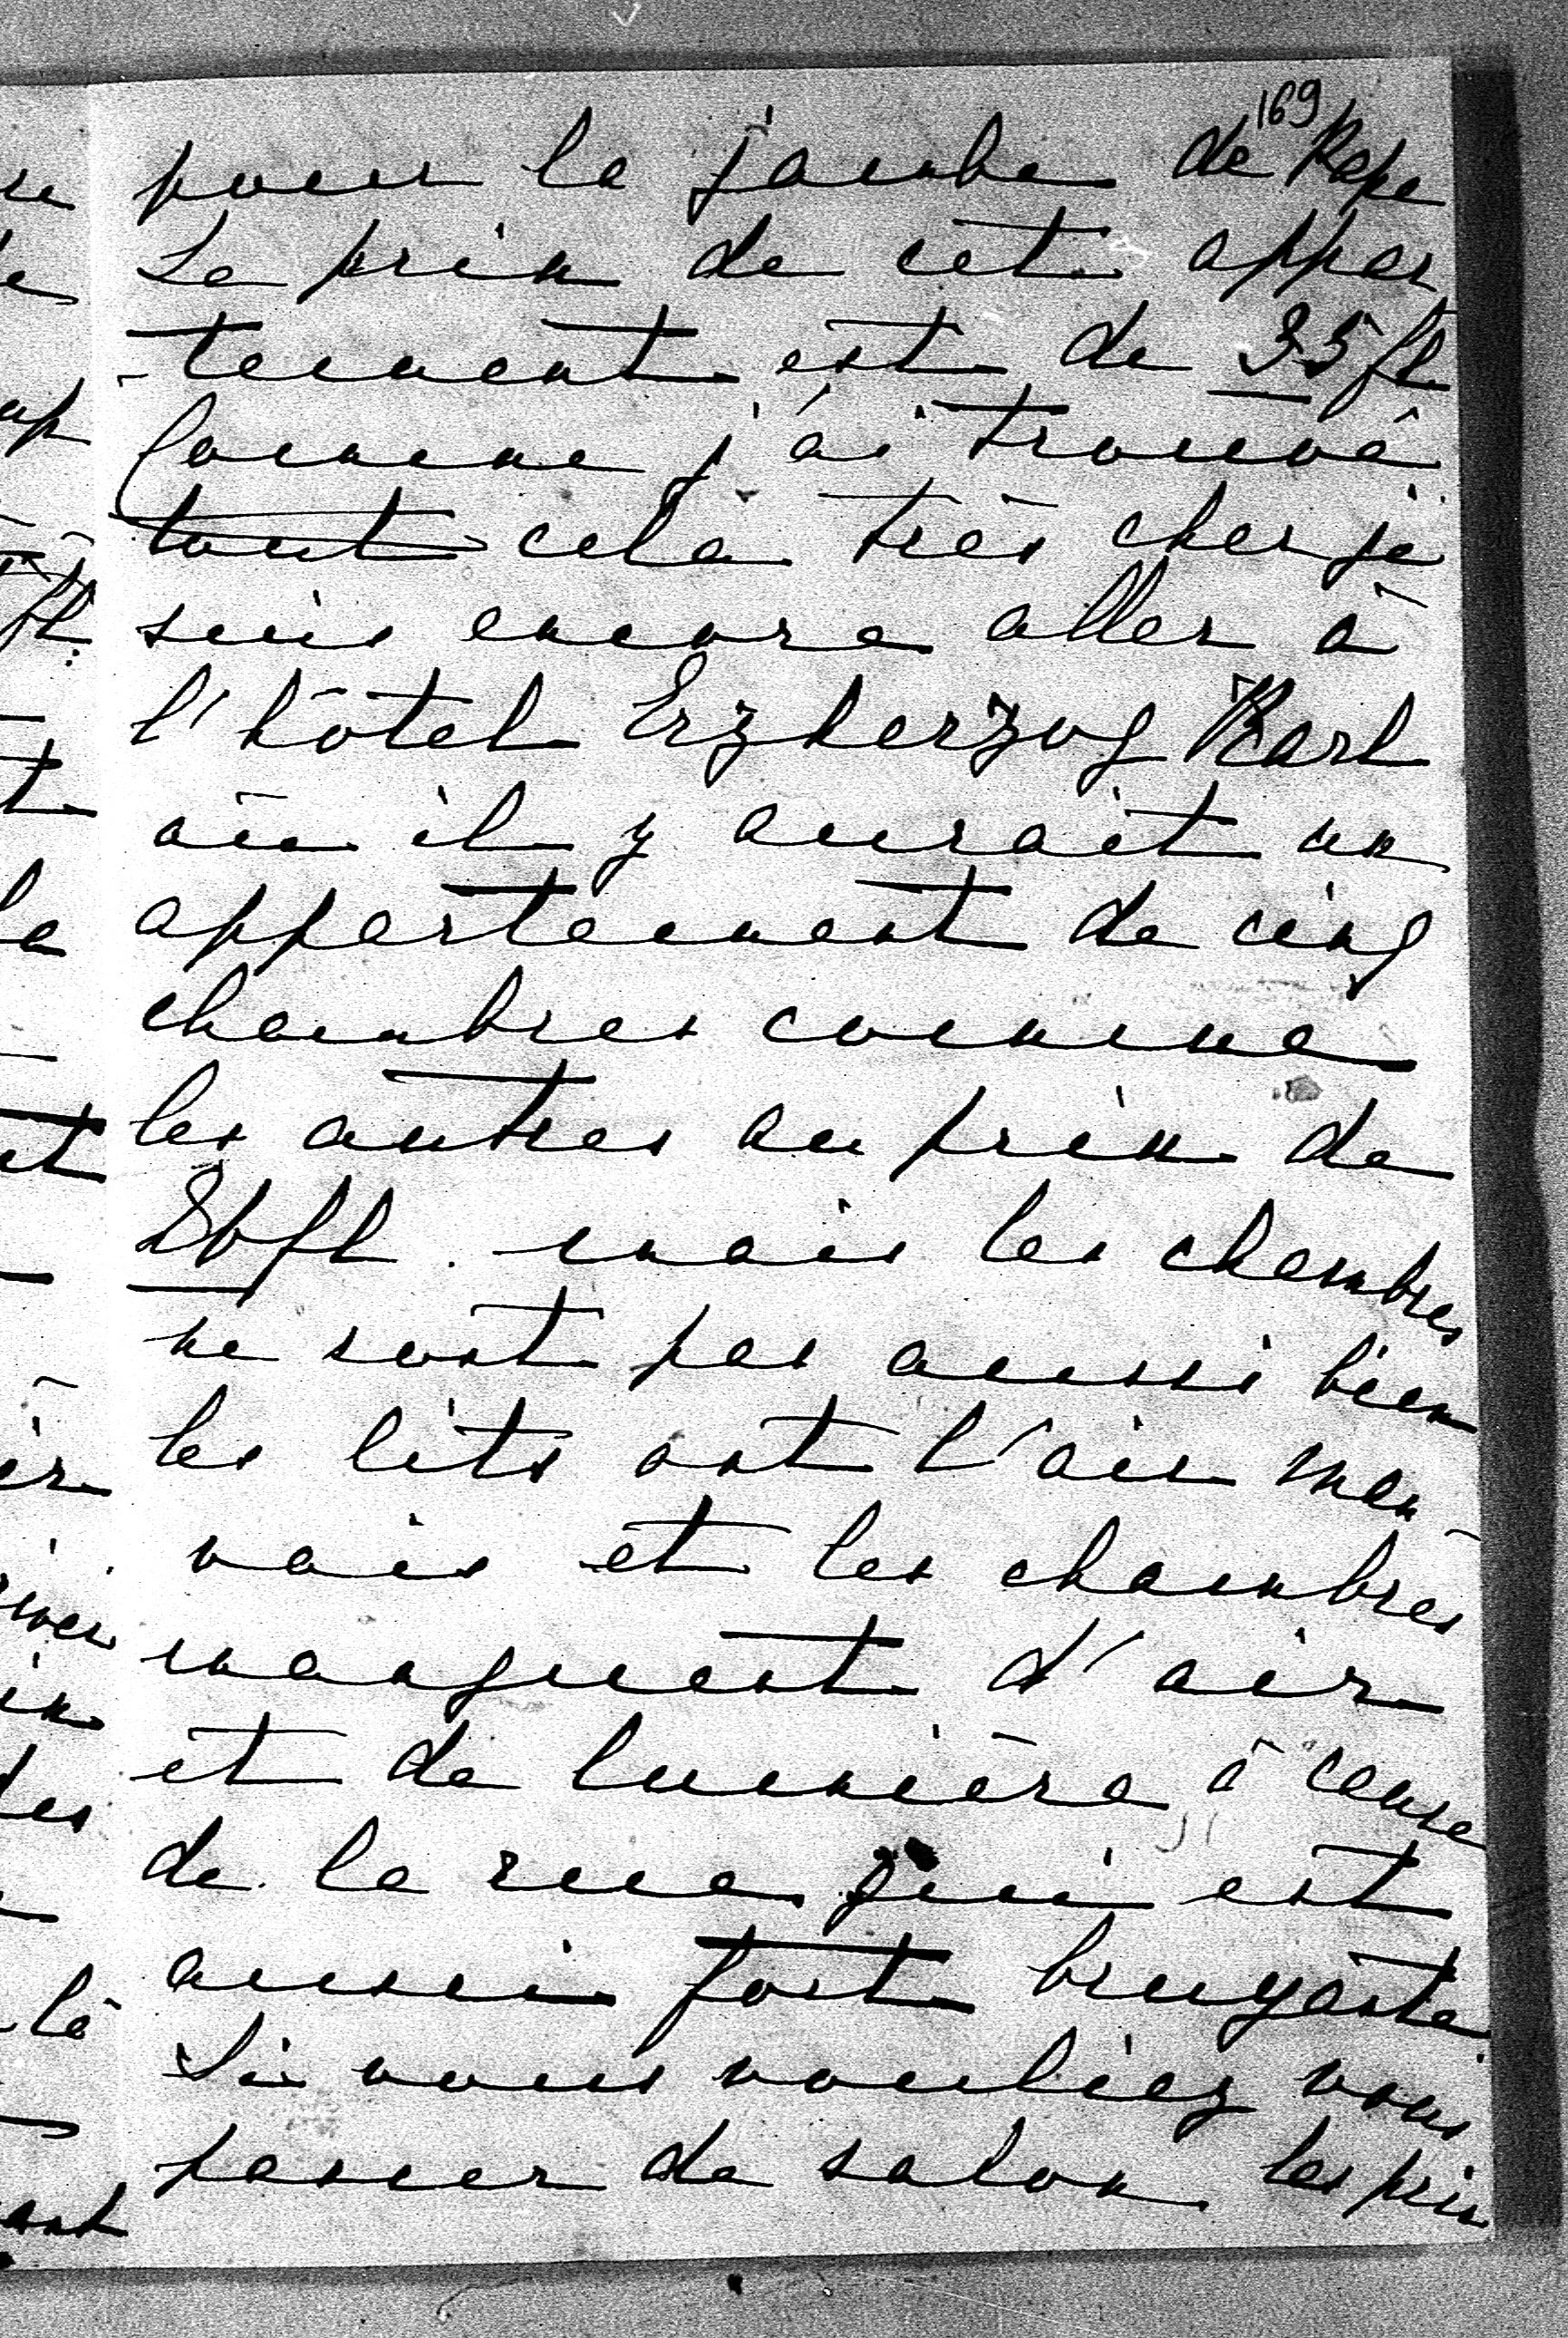 169
pour la jambe de Papa
Le prix de cet appar
-tement est de 35 fl.
Comme j'ai trouvé
tout cela très cher je
suis encore aller à
l'hôtel Erzherzog Karl
où il y aurait un
appartement de cinq
chambres comme
les autres au prix de
fl. mais les chambres
ne sont pas aussi bien
les lits ont l'air mau
vais et les chambres
manquent d'air
et de lumière à cause
de la rue qui est
aussi fort bruyante
Si vous vouliez vous
passer de salon les prix